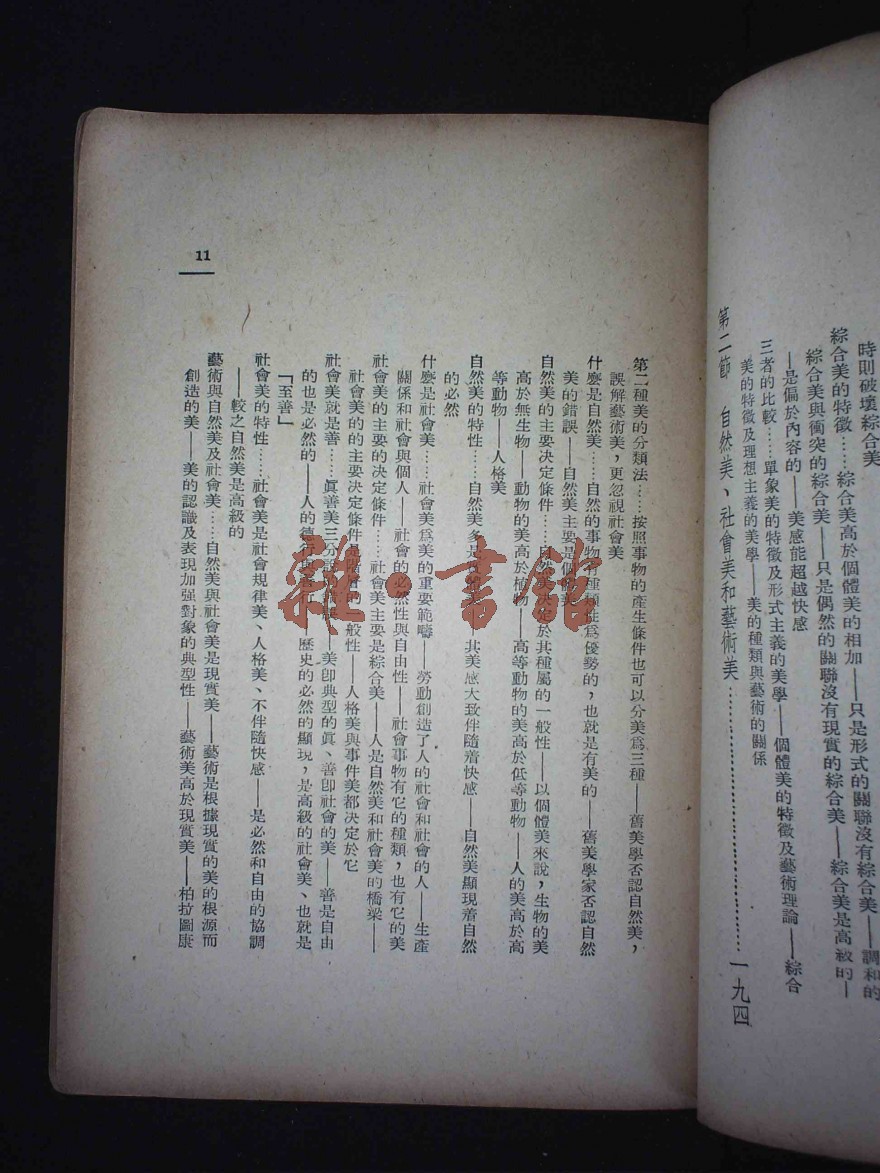 時則破壞綜合美
綜合美的特徵……綜合美高於個體美的相加——只是形式的關聯沒有綜合美——調和的
綜合美與衝突的綜合美——只是偶然的關聯沒有現實的綜合美——綜合美是高級的—
—是偏於內容的——美感能超越快感
三者的比較……單象美的特徵及形式主義的美學——個體美的特徵及藝術理論——綜合
美的特徵及理想主義的美學——美的種類與藝術的關係
第二節 自然美、社會美和藝術美……………………一九四
第二種美的分類法……按照事物的產生條件也可以分美爲三種——舊美學否認自然美，
誤解藝術美，更忽視社會美
什麼是自然美……自然的事物有種類性爲優勢的，也就是有美的——舊美學家否認自然
美的錯誤——自然美主要是個體美
自然美的主要決定條件……自然美決定於其種屬的一般性——以個體美來說，生物的美
高於無生物——動物的美高於植物——高等動物的美高於低等動物——人的美高於高
等動物——人格美
自然美的特性……自然美多是個體美——其美感大致伴隨着快感——自然美顯現着自然
的必然
什麼是社會美……社會美爲美的重要範疇——勞動創造了人的社會和社會的人——生產
關係和社會與個人——社會的必然性與自由性——社會事物有它的種類，也有它的美
社會美的主要的決定條件……社會美主要是綜合美——人是自然美和社會美的橋梁——
社會美的的主要決定條件是階層的一般性——人格美與事件美都決定於它
社會美就是善……眞善美三分說——美卽典型的眞、善卽社會的美——善是自由
的也是必然的——人的德行與善行——歷史的必然的顯現，是高級的社會美、也就是
「至善」
社會美的特性……社會美是社會規律美、人格美、不伴隨快感——是必然和自由的協調
——較之自然美是高級的
藝術與自然美及社會美……自然美與社會美是現實美——藝術是根據現實的美的根源而
創造的美——美的認識及表現加强對象的典型性——藝術美高於現實美——柏拉圖康
11
雜·書館